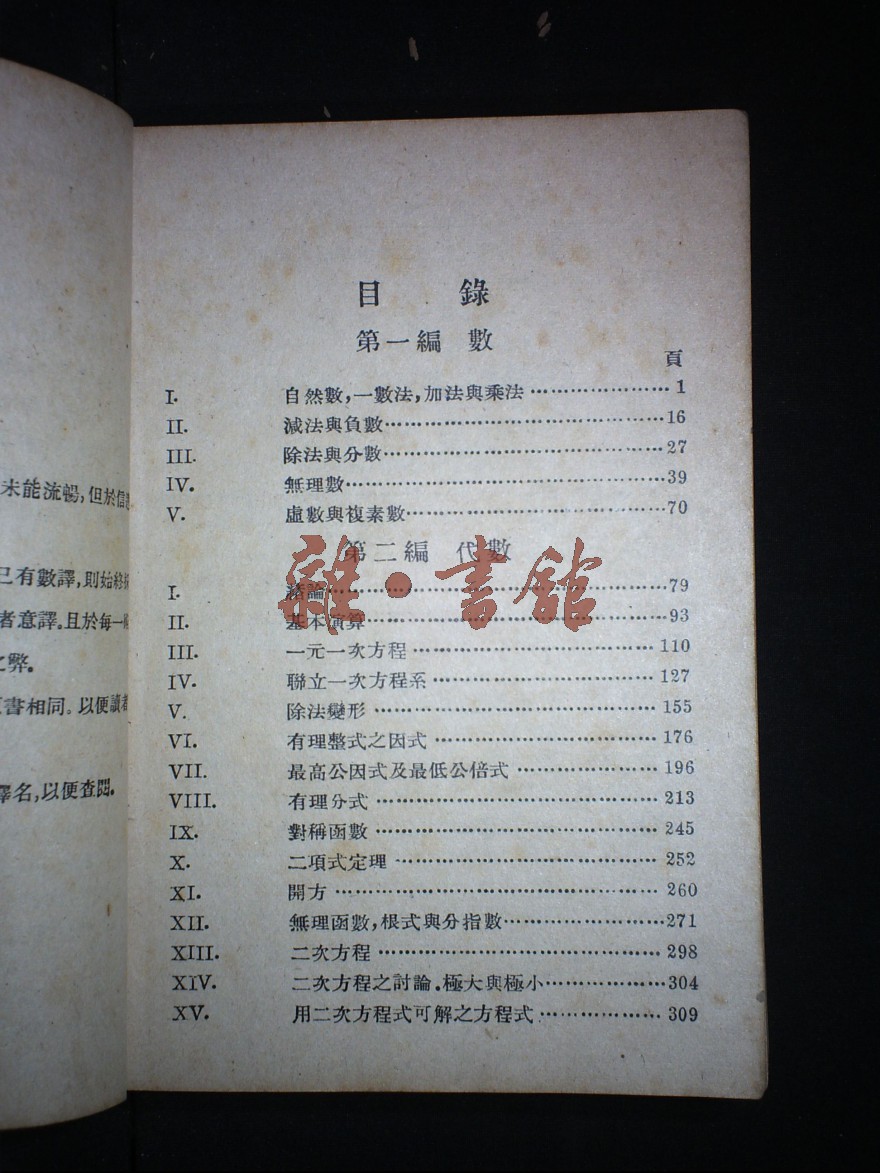 未能流暢,但於信達
已有數譯,則始終採
者意譯.且於每一個
之弊.
書相同.以便讀者
譯名,以便查閱.
目 錄
第一編 數
頁
I. 自然數,一數法,加法與乘法 1
II. 減法與負數 16
III. 除法與分數 27
IV. 無理數 39
V. 虛數與複素數 70
第二編 代數
雜·書館
I. 緒論 79
II. 基本演算 93
III. 一元一次方程 110
IV. 聯立一次方程系 127
V. 除法變形 155
VI. 有理整式之因式 176
VII. 最高公因式及最低公倍式 196
VIII. 有理分式 213
IX. 對稱函數 245
X. 二項式定理 252
XI. 開方 260
XII. 無理函數,根式與分指數 271
XIII. 二次方程 298
XIV. 二次方程之討論.極大與極小 304
XV. 用二次方程式可解之方程式 309